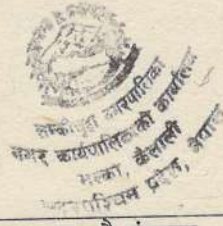 लम्कीचुहा नगरपालिका
नगर कार्यपालिकाको कार्यालय
कैलाली
सुदूरपश्चिम प्रदेश, नेपाल